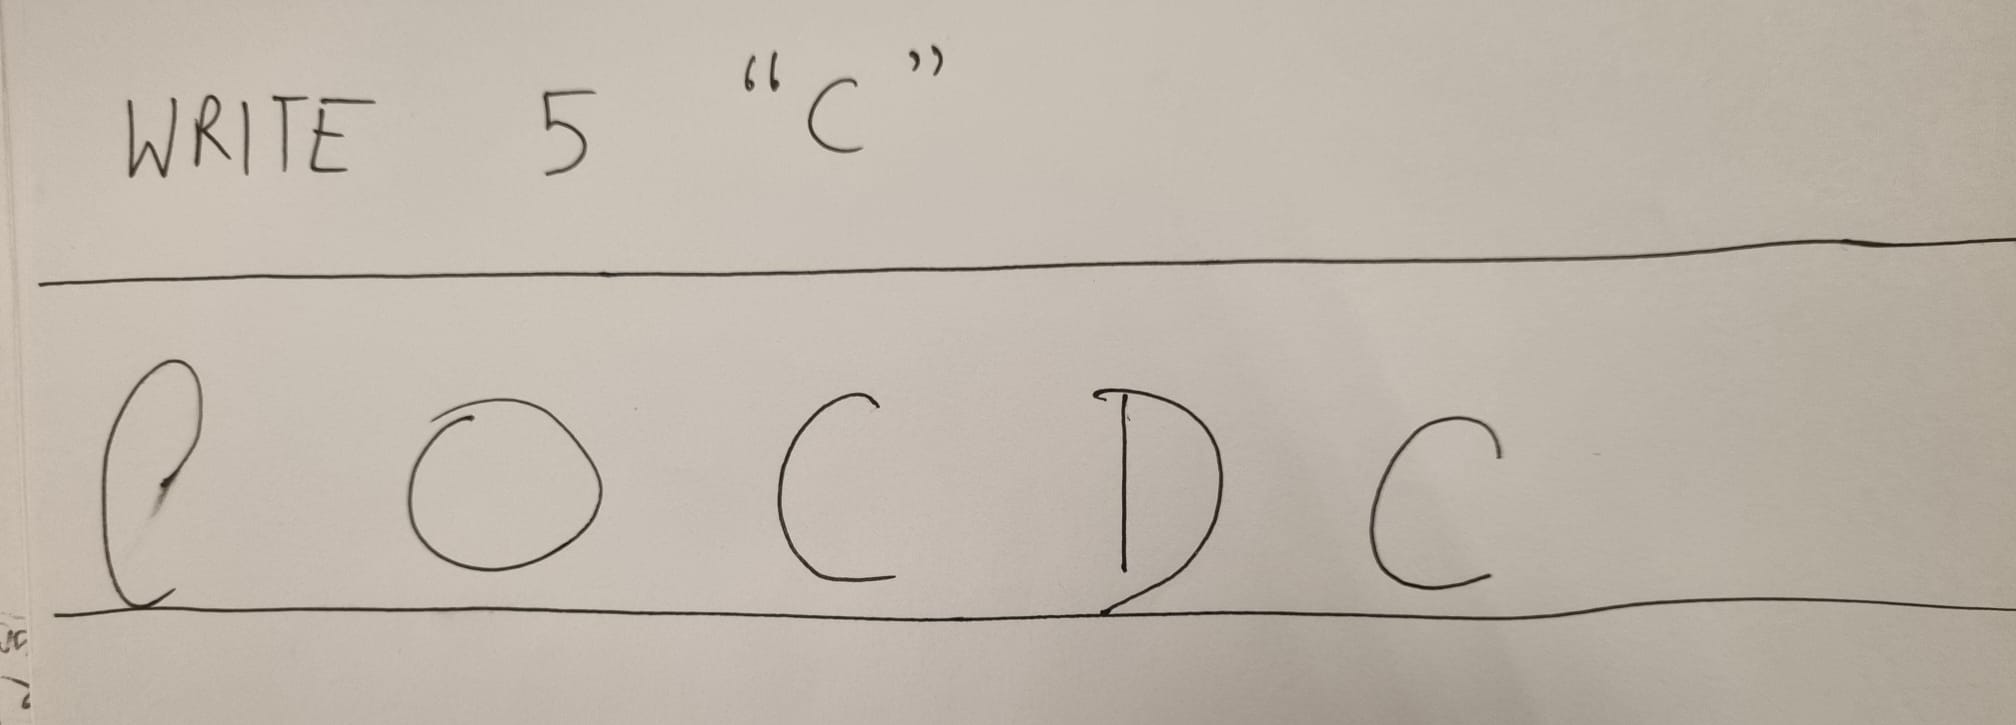 WRITE 5 “C”
C O C D C